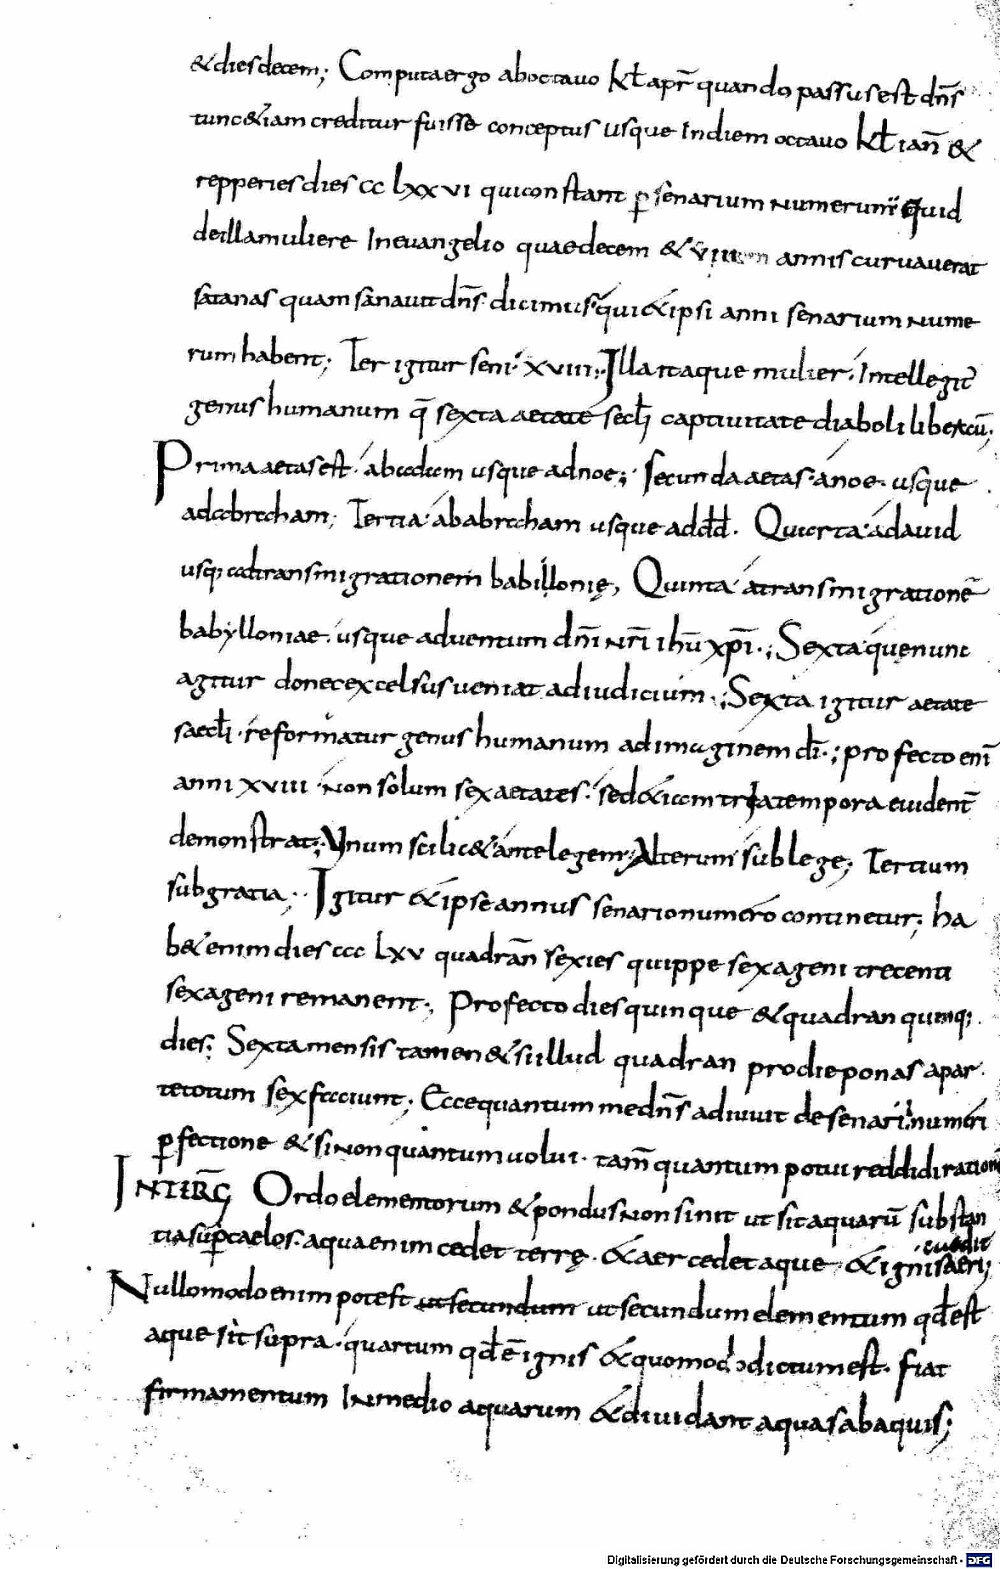 & dies decem; Computa ergo ab octauo kƚ apr̄ quando passus est dn̄s
tunc & iam creditur fuisse conceptus usque in diem octauo kƚ ian̄ &
repperies dies cc lxxvi qui constant p̱ senarium numerum; Quid
de illa muliere in euangelio quae decem & viii annis curuauerat
satanas quam sanauit dn̄s. dicimus qui & ipsi anni senarium nume
rum habent; Ter igitur seni xviii; Illa itaque mulier. Intellegit̄
genus humanum q̄ sexta aetate secƚi captiuitate diaboli
Prima aetas est. ab adam usque ad noe; Secunda aetas. a noe. usque
ad abraham; Tertia. ab abraham usque ad dd̄. Quarta. a dauid
usq; ad transmigrationem babillonię, Quinta a transmigrationē
babylloniae. usque aduentum dn̄i nr̄i ihū xp̄i.; Sexta quę nunc
agitur donec excelsus ueniat ad iudicium.; Sexta igitur aetate
saecƚi. reformatur genus humanum ad imaginem dī.; profecto enī
anni xviii non solum sex aetates. sed & iam tria tempora euident̄
demonstrat; Unum scilic& ante legem. Alterum sub lege; Tertium
sub gratia; Igitur & ipse annus senario numero continetur; ha
b& enim dies ccc lxv quadran̄ sexies quippe sexageni trecenti
sexageni remanent; Profecto dies quinque & quadran quinq;
dies; Sexta mensis tamen & si illud quadran pro die ponas a par
te totum sex faciunt; Ecce quantum me dn̄s adiuuit de senari numeri
p̱fectione & si non quantum uolui. tam̄ quantum potui reddidi rationē
INTERG̅ Ordo elementorum & pondus non sinit ut sit aquarū substan
tia sup̱ caelos. aqua enim cedet terrę. & aer cedet aque. & ignis aeri;
cuadit
Nullo modo enim potest ut secundum ut secundum elementum qđ est
aque sit supra. quartum qđ ē ignis & quomodo dictum est. fiat
firmamentum in medio aquarum & diuidant aquas ab aquis;
Digitalisierung gefördert durch die Deutsche Forschungsgemeinschaft - DFG